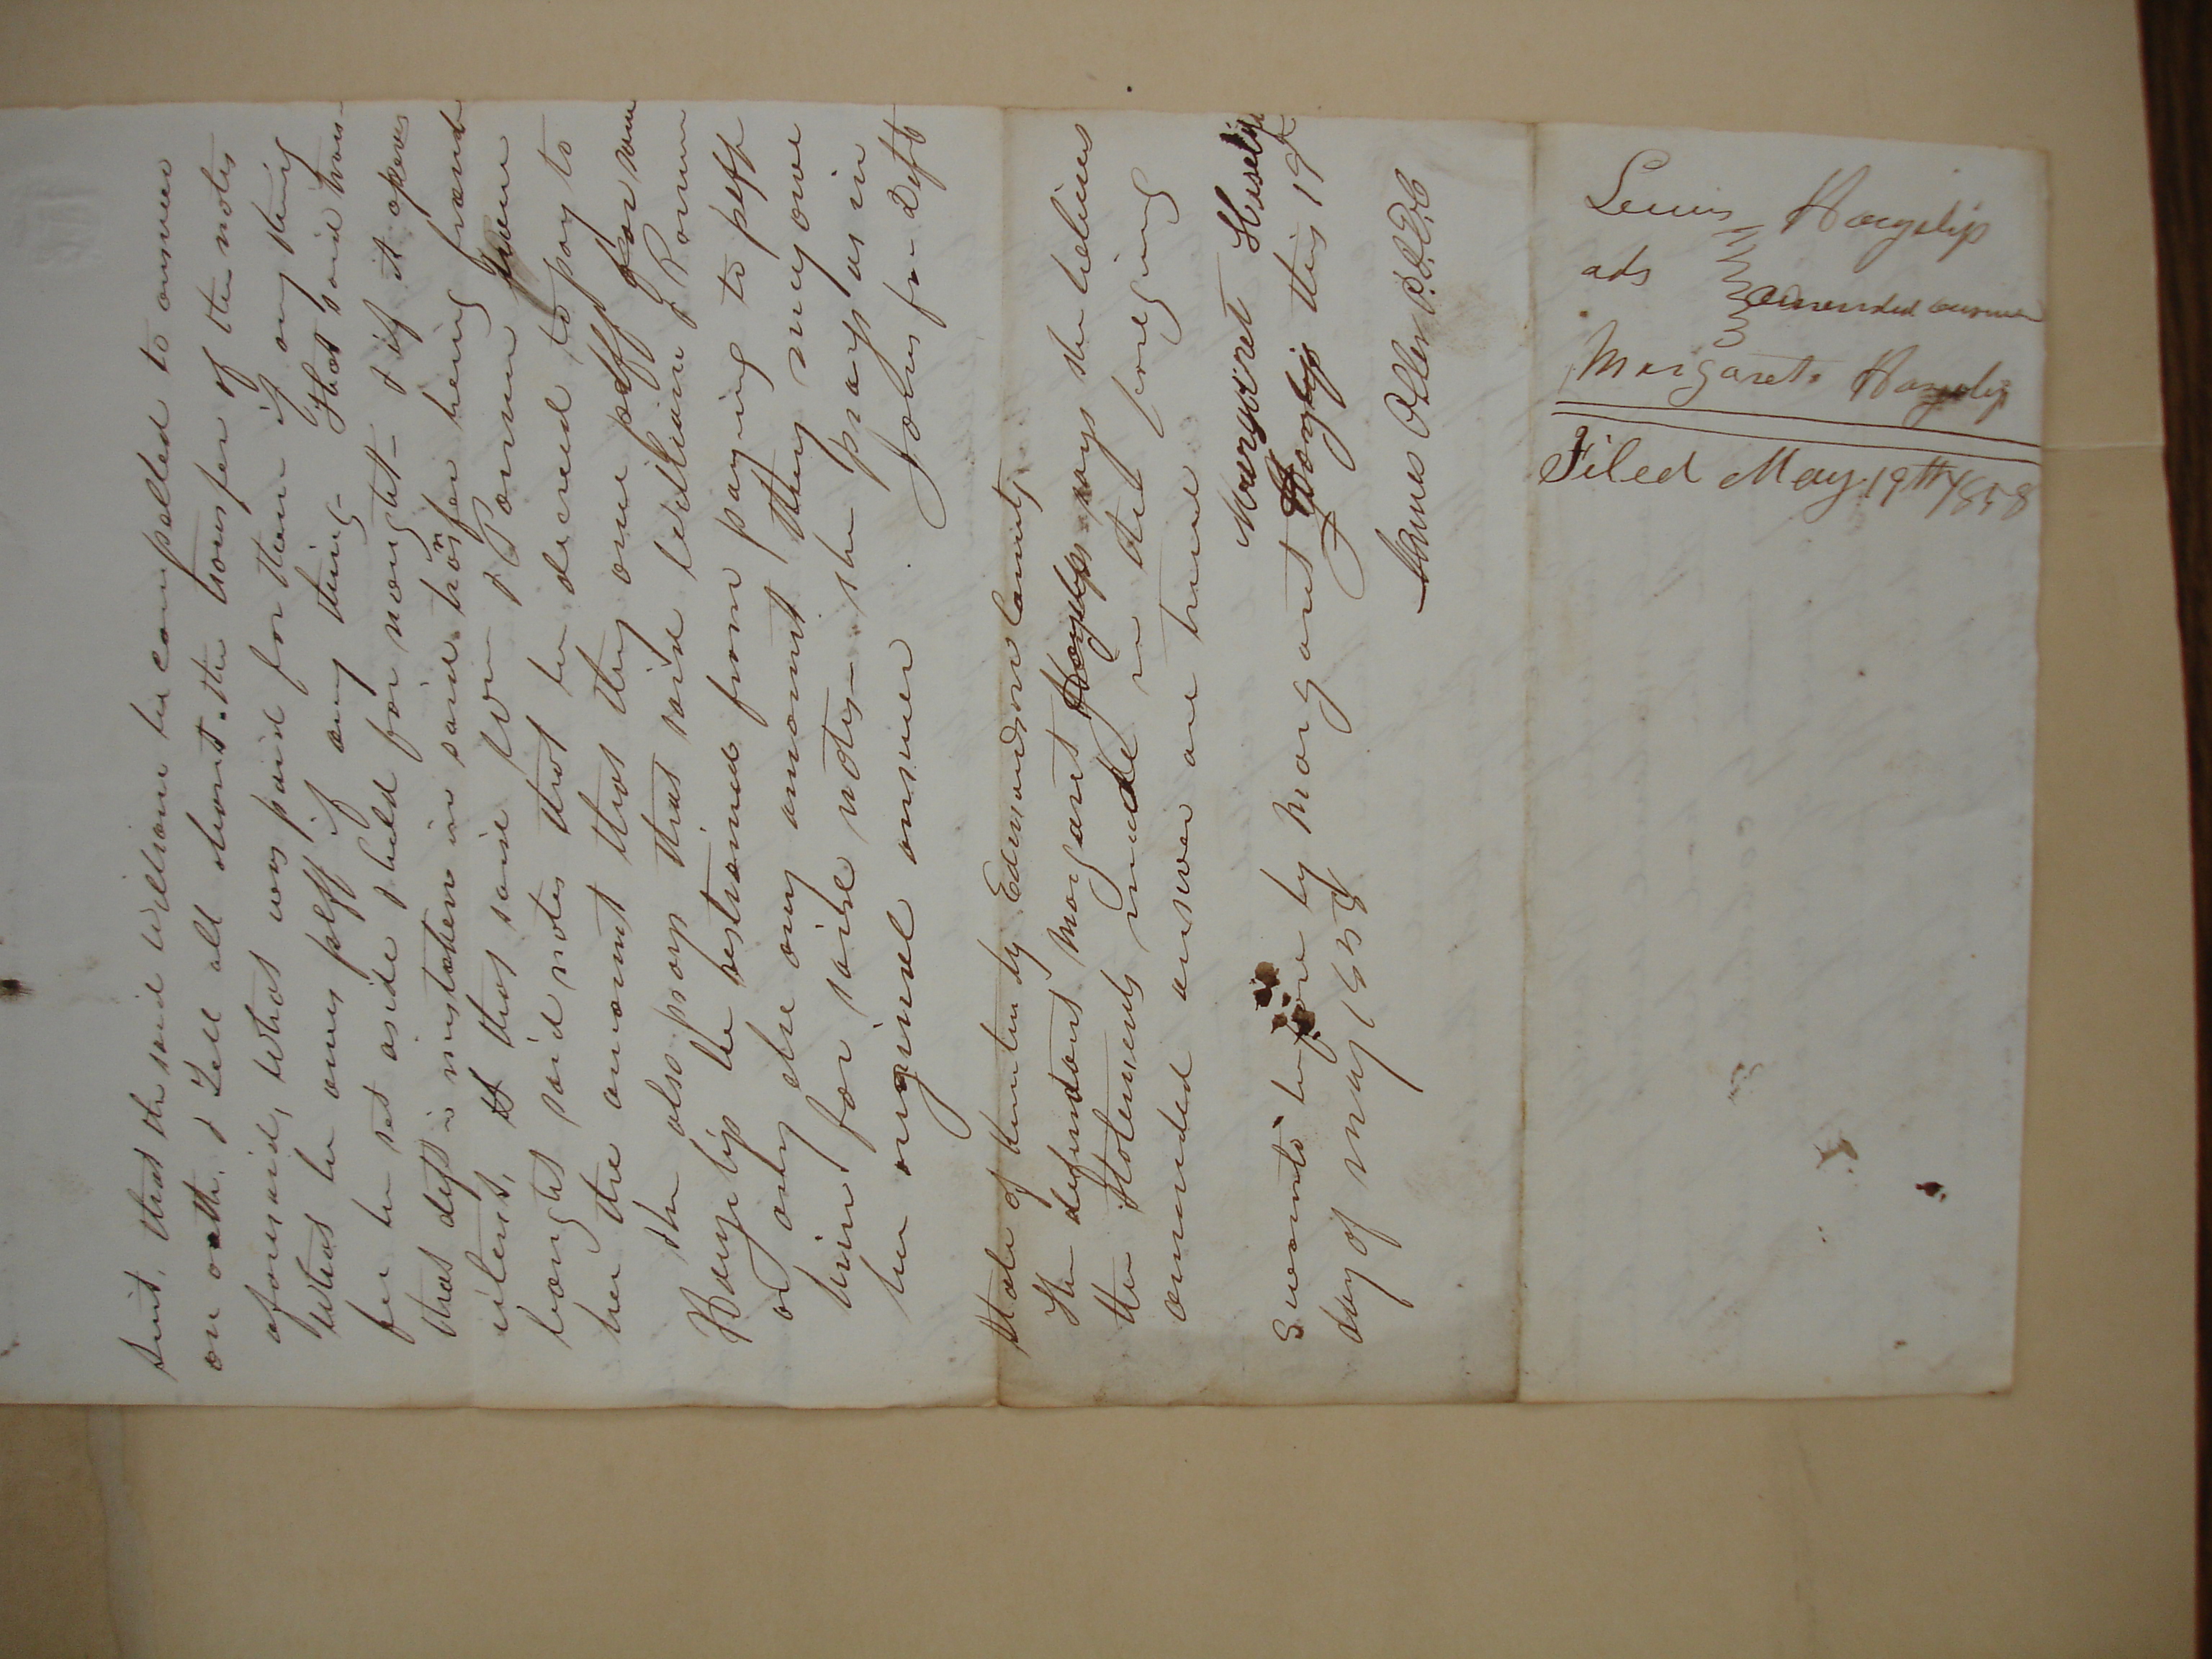 suit, that the said William be compelled to answer
on oath, & Tell all about the transfer of the notes
aforesaid, What was paid for them if any thing
What he owes plff if any thing - That said trans-
fer be set aside & held for nought - & if it apears
that deft is mistaken in said transfer being fraud
ulent, & that said Wm & Roman have
bought said notes that he be decreed to pay to
her the amount that they owe plff for same
She also prays that said William & Roman
Hayslip be restrained from paying to plff
or any else any amount they may owe
him for said notes - she prays as in
her original answer
Johns for Deft
State of Kentucky Edmondson County
The defendant Margaret Hayslip says she believes
the statements made in the foregoing
amended answer are true
Margaret Hiselip
Sworn to before by Margaret Hayslip this 19th
day of May 1858
Lewis Hayslip
ads
amended answer
Margaret Hayslip
Filed May 19th 1858